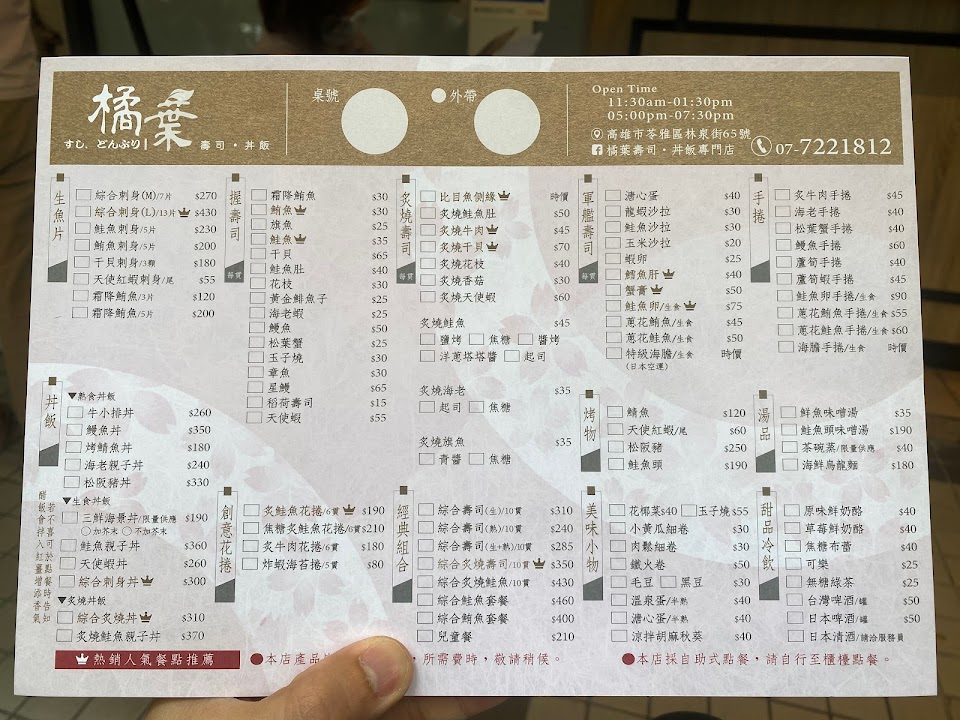 橘葉
すし、どんぶり
壽司・丼飯
桌號
外帶
Open Time
11:30am-01:30pm
05:00pm-07:30pm
高雄市苓雅區林泉街65號
橘葉壽司・丼飯專門店
07-7221812
生魚片
綜合刺身(M)/7片 $270
綜合刺身(L)/13片 $430
鮭魚刺身/5片 $230
鮪魚刺身/5片 $200
干貝刺身/3顆 $180
天使紅蝦刺身/尾 $55
霜降鮪魚/3片 $120
霜降鮪魚/5片 $200
握壽司
每貫
霜降鮪魚 $30
鮪魚 $30
旗魚 $25
鮭魚 $35
干貝 $65
鮭魚肚 $40
花枝 $30
黃金鯡魚子 $25
海老蝦 $25
鰻魚 $50
松葉蟹 $25
玉子燒 $30
章魚 $30
星鰻 $65
稻荷壽司 $15
天使蝦 $55
炙燒壽司
每貫
比目魚側緣 時價
炙燒鮭魚肚 $50
炙燒牛肉 $45
炙燒干貝 $70
炙燒花枝 $40
炙燒香菇 $30
炙燒天使蝦 $60
炙燒鮭魚 $45
鹽烤 焦糖 醬烤
洋蔥塔塔醬 起司
炙燒海老 $35
起司 焦糖
炙燒旗魚 $35
青醬 焦糖
軍艦壽司
每貫
溏心蛋 $40
龍蝦沙拉 $30
鮭魚沙拉 $30
玉米沙拉 $20
蝦卵 $25
鱈魚肝 $40
蟹膏 $50
鮭魚卵/生食 $75
蔥花鮪魚/生食 $45
蔥花鮭魚/生食 $50
特級海膽/生食 時價
(日本空運)
手捲
炙牛肉手捲 $45
海老手捲 $40
松葉蟹手捲 $40
鰻魚手捲 $60
蘆筍手捲 $40
蘆筍蝦手捲 $45
鮭魚卵手捲/生食 $90
蔥花鮪魚手捲/生食 $55
蔥花鮭魚手捲/生食 $60
海膽手捲/生食 時價
丼飯
▼熟食丼飯
牛小排丼 $260
鰻魚丼 $350
烤鯖魚丼 $180
海老親子丼 $240
松阪豬丼 $330
▼生食丼飯
三鮮海景丼/限量供應 $190
加芥末 不加芥末
鮭魚親子丼 $360
天使蝦丼 $260
綜合刺身丼 $300
▼炙燒丼飯
綜合炙燒丼 $310
炙燒鮭魚親子丼 $370
醋飯會拌入紅薑增添香氣
若不喜可於點餐時告知
烤物
鯖魚 $120
天使紅蝦/尾 $60
松阪豬 $250
鮭魚頭 $190
湯品
鮮魚味噌湯 $35
鮭魚頭味噌湯 $190
茶碗蒸/限量供應 $40
海鮮烏龍麵 $180
創意花捲
炙鮭魚花捲/6貫 $190
焦糖炙鮭魚花捲/6貫 $210
炙牛肉花捲/6貫 $180
炸蝦海苔捲/5貫 $80
經典組合
綜合壽司(生)/10貫 $310
綜合壽司(熟)/10貫 $240
綜合壽司(生+熟)/10貫 $285
綜合炙燒壽司/10貫 $350
綜合炙燒鮭魚/10貫 $430
綜合鮭魚套餐 $460
綜合鮪魚套餐 $400
兒童餐 $210
美味小物
花椰菜$40 玉子燒$55
小黃瓜細卷 $30
肉鬆細卷 $30
鐵火卷 $50
毛豆 黑豆 $30
溫泉蛋/半熟 $40
溏心蛋/半熟 $40
涼拌胡麻秋葵 $40
甜品冷飲
原味鮮奶酪 $40
草莓鮮奶酪 $40
焦糖布蕾 $40
可樂 $25
無糖綠茶 $25
台灣啤酒/罐 $50
日本啤酒/罐 $50
日本清酒/請洽服務員
熱銷人氣餐點推薦
●本店產品
所需費時，敬請稍侯。
●本店採自助式點餐，請自行至櫃檯點餐。